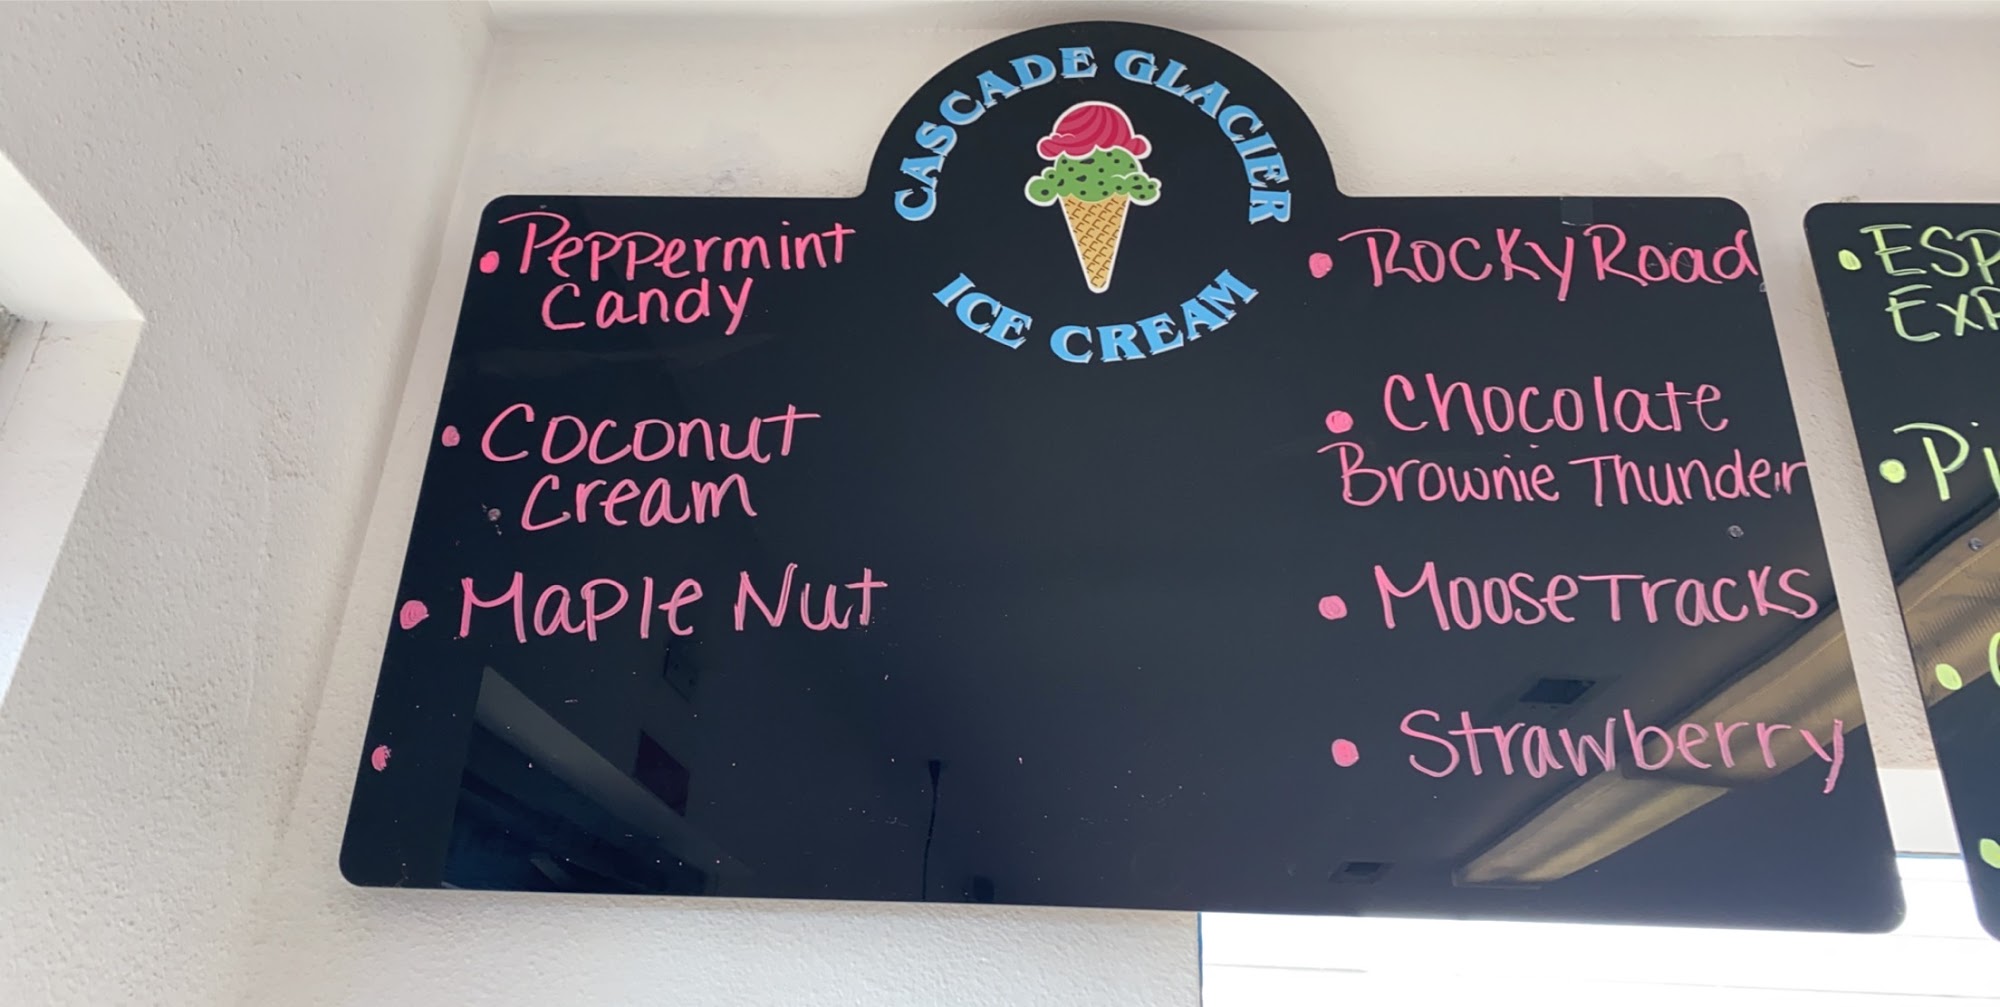 CASCADE GLACIER
ICE CREAM
• Peppermint
Candy
• Coconut
Cream
• Maple Nut
•
• Rocky Road
• Chocolate
Brownie Thunder
• Moose Tracks
• Strawberry